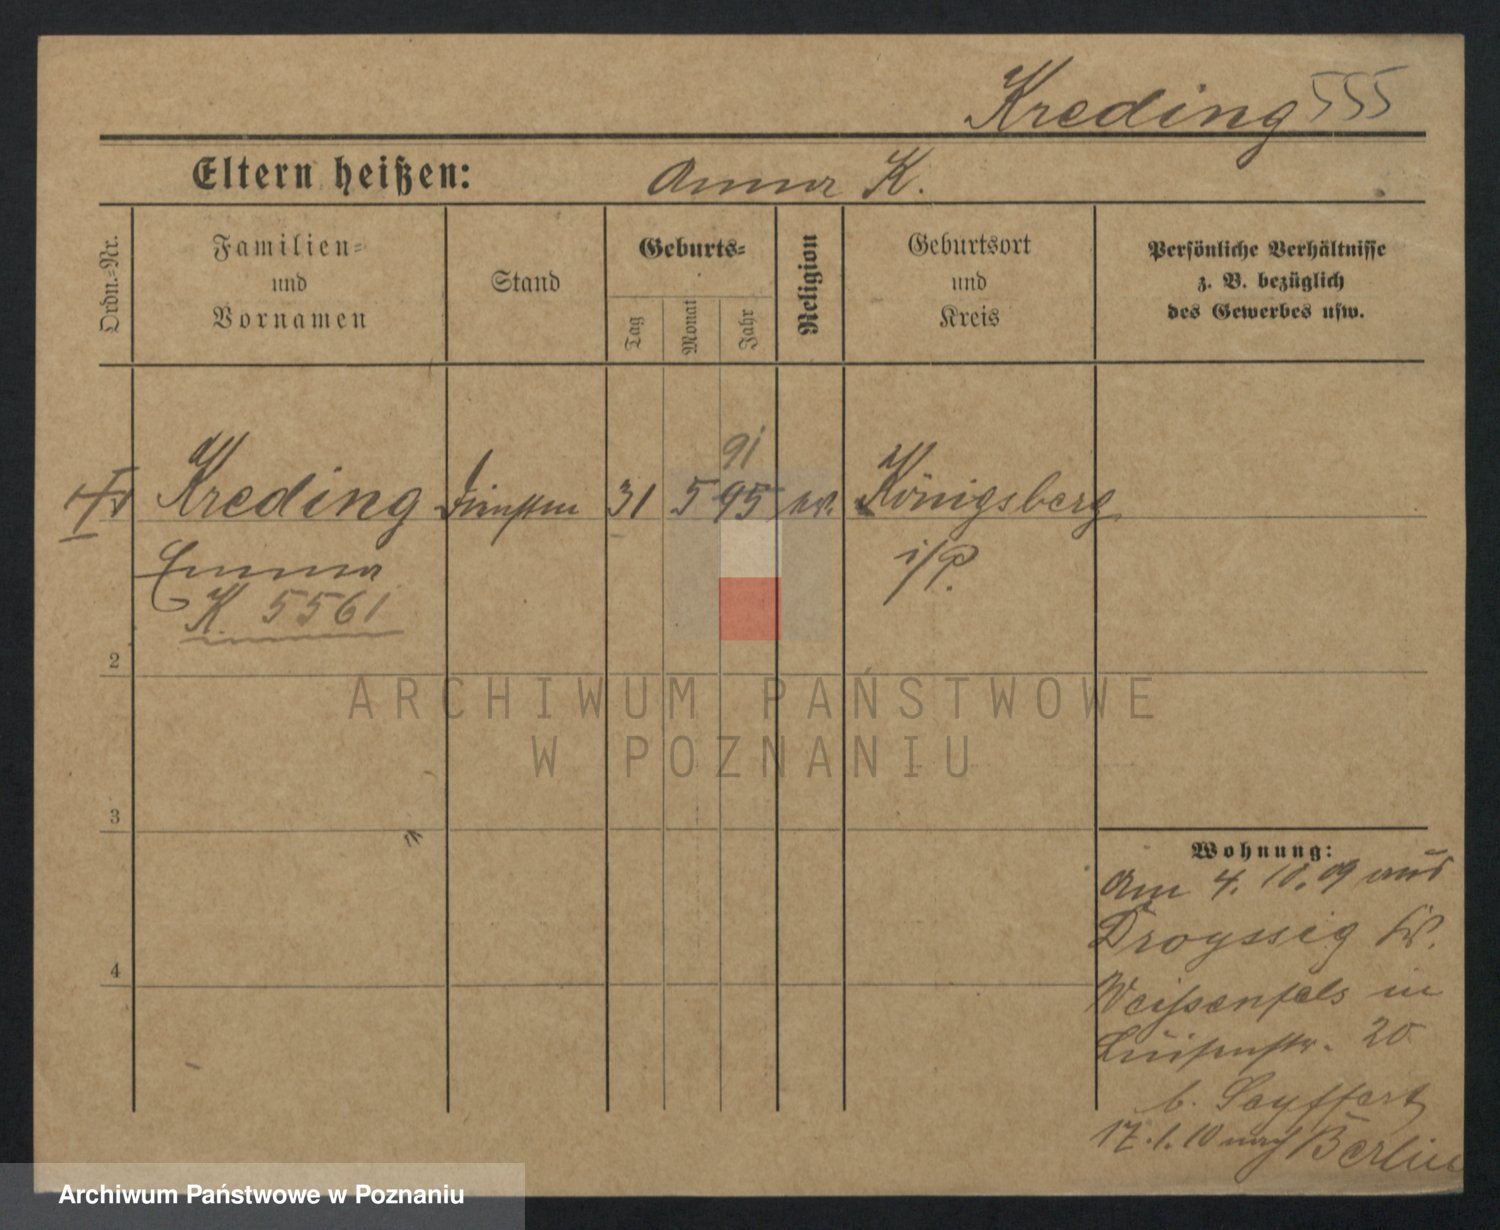 Kreding 555
Eltern heißen: Anna K.
Ordn.-Nr.
Familien-
und
Vornamen
Stand
Geburts-
Tag
Monat
Jahr
Religion
Geburtsort
und
Kreis
Persönliche Verhältnisse
z. B. bezüglich
des Gewerbes usw.
91
Kreding 31 5 95 ev. Königsberg
Emma i/P.
K 5561
2
3
4
Wohnung:
Am 4. 10. 09 aus
Droyssig Kr.
Weißenfels in
Luisenstr. 20
b. Seyffert
17.1.10 nach Berlin
ARCHIWUM PAŃSTWOWE
W POZNANIU
Archiwum Państwowe w Poznaniu